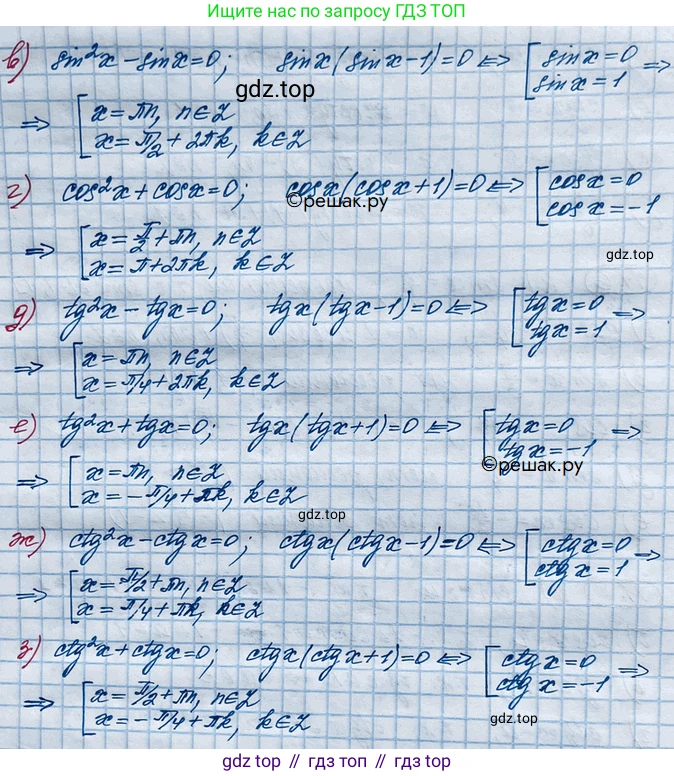 Ищите нас по запросу ГДЗ ТОП
в) sin²x − sinx = 0; sinx(sinx − 1) = 0 ⇔ [ sinx = 0
sinx = 1 ⇒
gdz.top
⇒ [ x = πn, n∈Z
x = π/2 + 2πk, k∈Z
г) cos²x + cosx = 0; cosx(cosx + 1) = 0 ⇔ [ cosx = 0
cosx = −1
©решак.ру
⇒ [ x = π/2 + πn, n∈Z
x = π + 2πk, k∈Z
gdz.top
д) tg²x − tgx = 0; tgx(tgx − 1) = 0 ⇔ [ tgx = 0 ⇒
tgx = 1
⇒ [ x = πn, n∈Z
x = π/4 + 2πk, k∈Z
е) tg²x + tgx = 0; tgx(tgx + 1) = 0 ⇔ [ tgx = 0 ⇒
tgx = −1
©решак.ру
⇒ [ x = πn, n∈Z
x = −π/4 + πk, k∈Z
gdz.top
ж) ctg²x − ctgx = 0; ctgx(ctgx − 1) = 0 ⇔ [ ctgx = 0 ⇒
ctgx = 1
⇒ [ x = π/2 + πn, n∈Z
x = π/4 + πk, k∈Z
з) ctg²x + ctgx = 0; ctgx(ctgx + 1) = 0 ⇔ [ ctgx = 0 ⇒
ctgx = −1
⇒ [ x = π/2 + πn, n∈Z
x = −π/4 + πk, k∈Z
gdz.top
gdz.top // гдз топ // гдз.топ